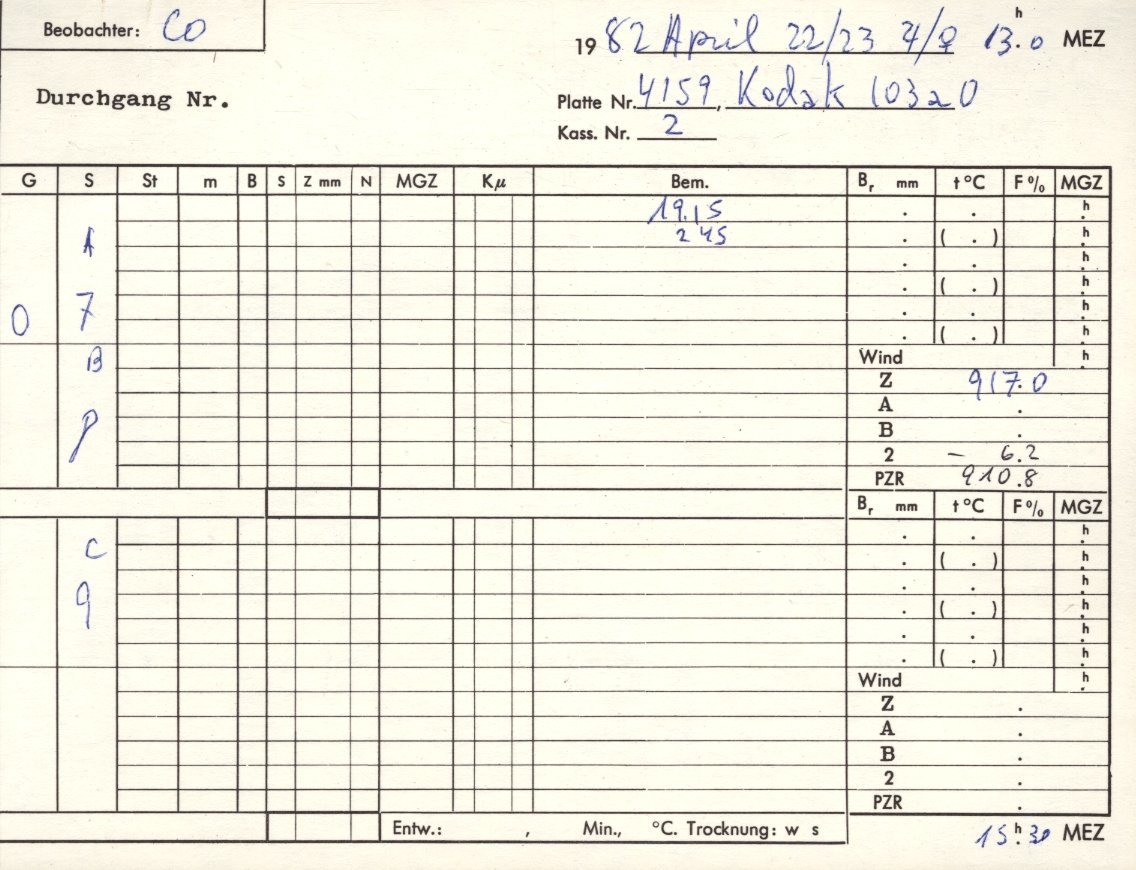 Beobachter: CO
1982 April 22/23 ♃/♀ 13.ʰ0 MEZ
Durchgang Nr.
Platte Nr. 4159, Kodak 103a0
Kass. Nr. 2
G S St m B S Z mm N MGZ Kμ Bem. Bᵣ mm t°C F% MGZ
19.15 . . h
A 245 . ( . ) h
. . h
. ( . ) h
0 7 . . h
. ( . ) h
B Wind h
Z 917.0
A .
p B .
2 – 6.2
PZR 910.8
Bᵣ mm t°C F% MGZ
. . h
C . ( . ) h
. . h
9 . ( . ) h
. . h
. ( . ) h
Wind h
Z .
A .
B .
2 .
PZR .
Entw.: , Min., °C. Trocknung: w s
15.ʰ30 MEZ